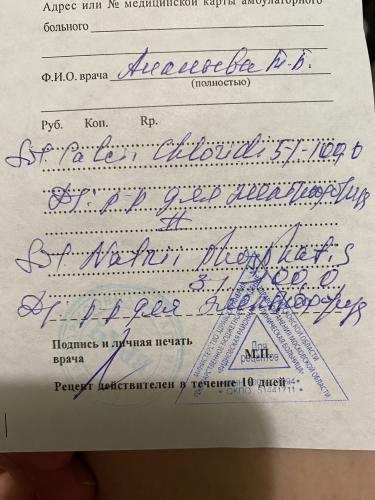 Адрес или № медицинской карты амбулаторного
больного
Ф.И.О. врача Ананьева Т.Б.
(полностью)
Руб. Коп. Rp.
Sol. Calcii Chloridi 5% - 100,0
D.S. р-р для электрофореза
#
Sol. Natrii phosphatis
3% 100,0
D.S. р-р для электрофореза
Подпись и личная печать
врача
М.П.
Для
рецептов
МОСКОВСКОЙ ОБЛАСТИ
• ОКПО 51441711 •
Рецепт действителен в течение 10 дней